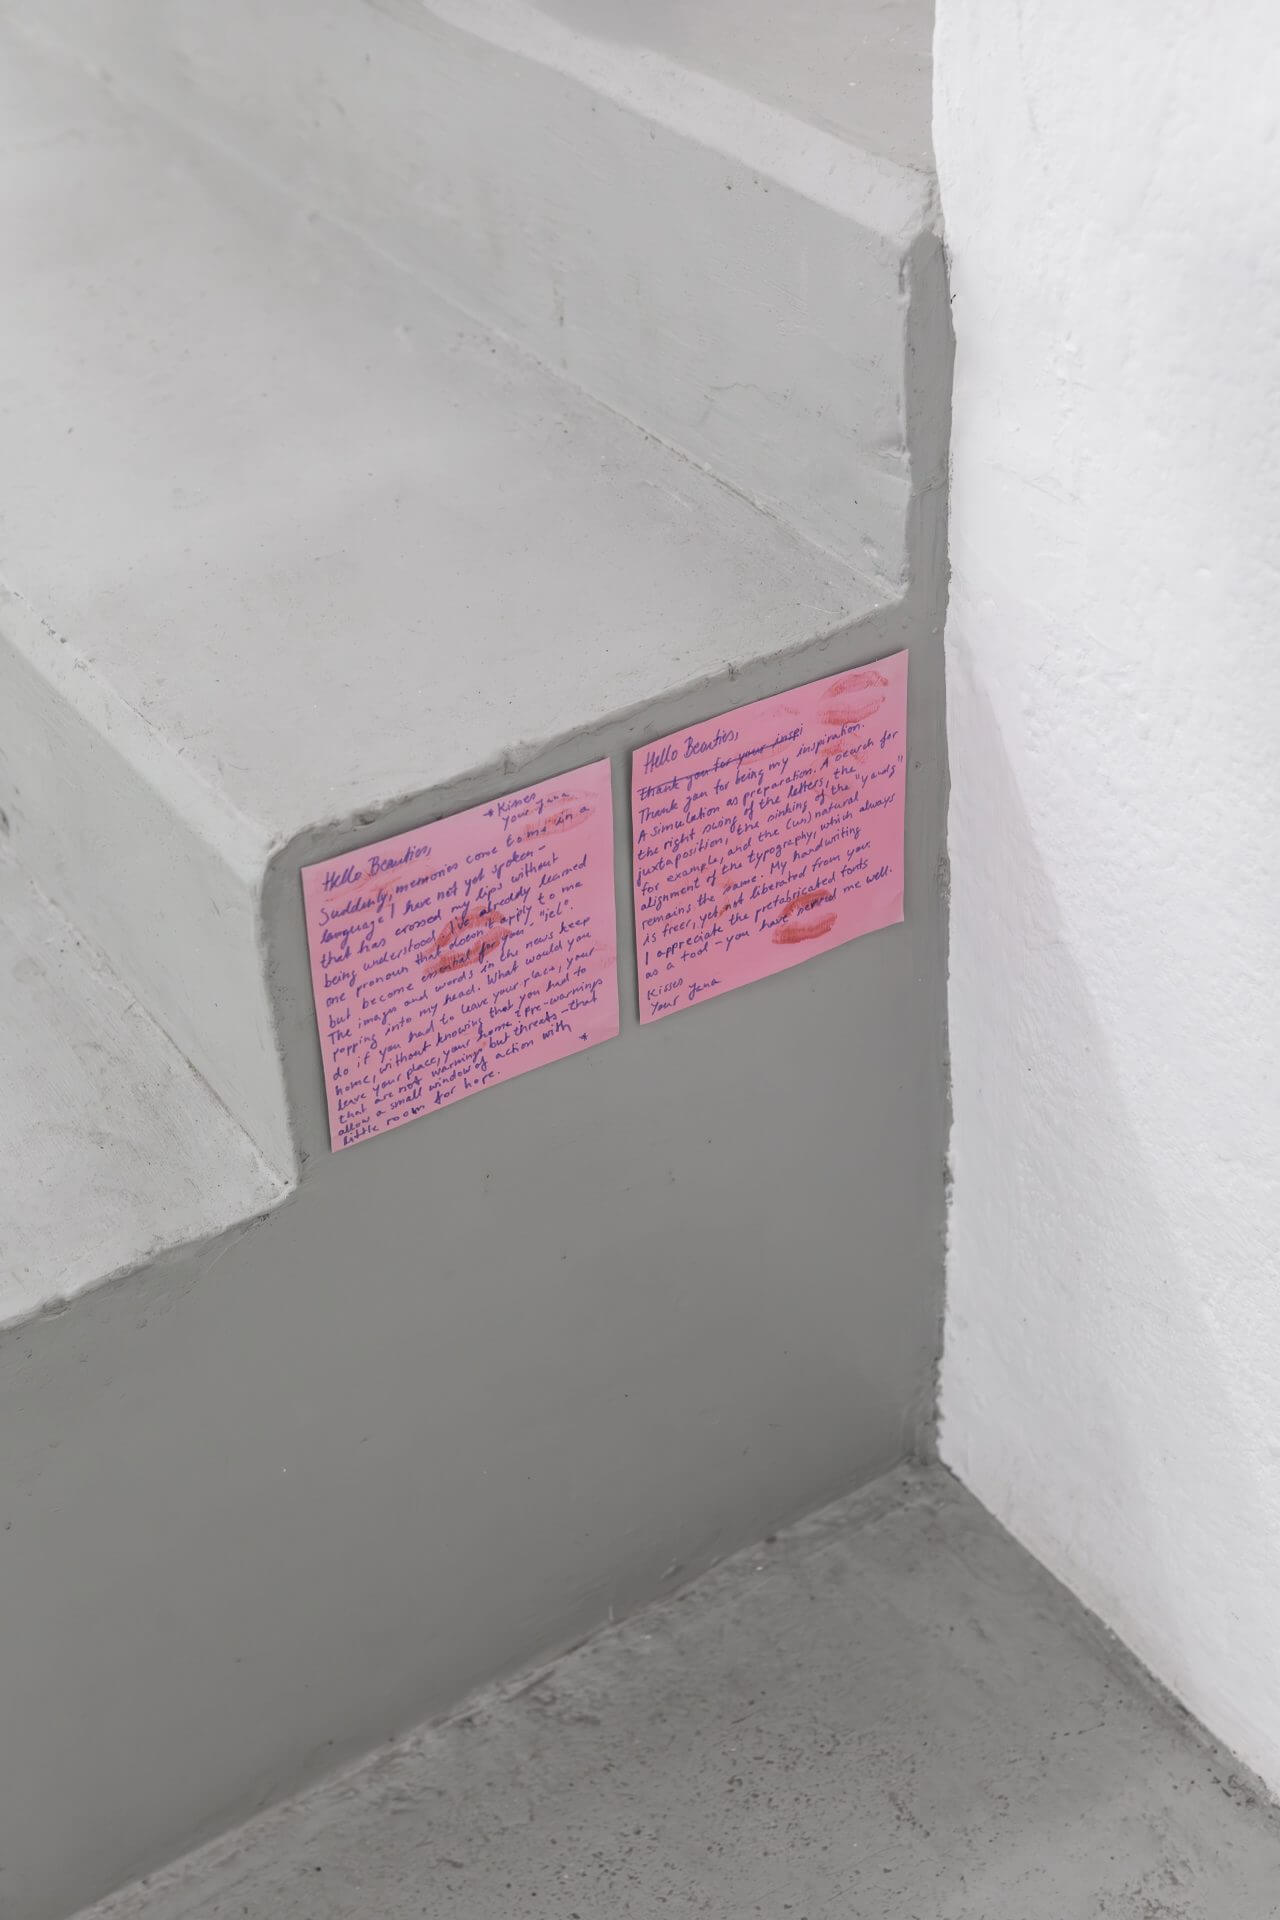 Hello Beauties,
Suddenly, memories come to me in a
language I have not yet spoken –
that has crossed my lips without
being understood. I've already learned
one pronoun that doesn't apply to me
but become essential for you, "jel".
The images and words in the news keep
popping into my head. What would you
do if you had to leave your place, your
home, without knowing that you had to
leave your place, your home? Pre-warnings
that are not warnings but threats – that
allow a small window of action with
little room for hope. *
*Kisses
Your Jana
Hello Beauties,
Thank you for your inspi
Thank you for being my inspiration.
A simulation as preparation. A search for
the right swing of the letters, the
juxtaposition, the sinking of the "yawds"
for example, and the (un)natural
alignment of the typography, which always
remains the same. My handwriting
is freer, yet not liberated from you.
I appreciate the prefabricated fonts
as a tool – you have served me well.
Kisses
Your Jana